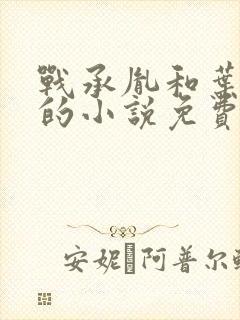 戰承胤和葉
的小說免費
安妮阿普尔